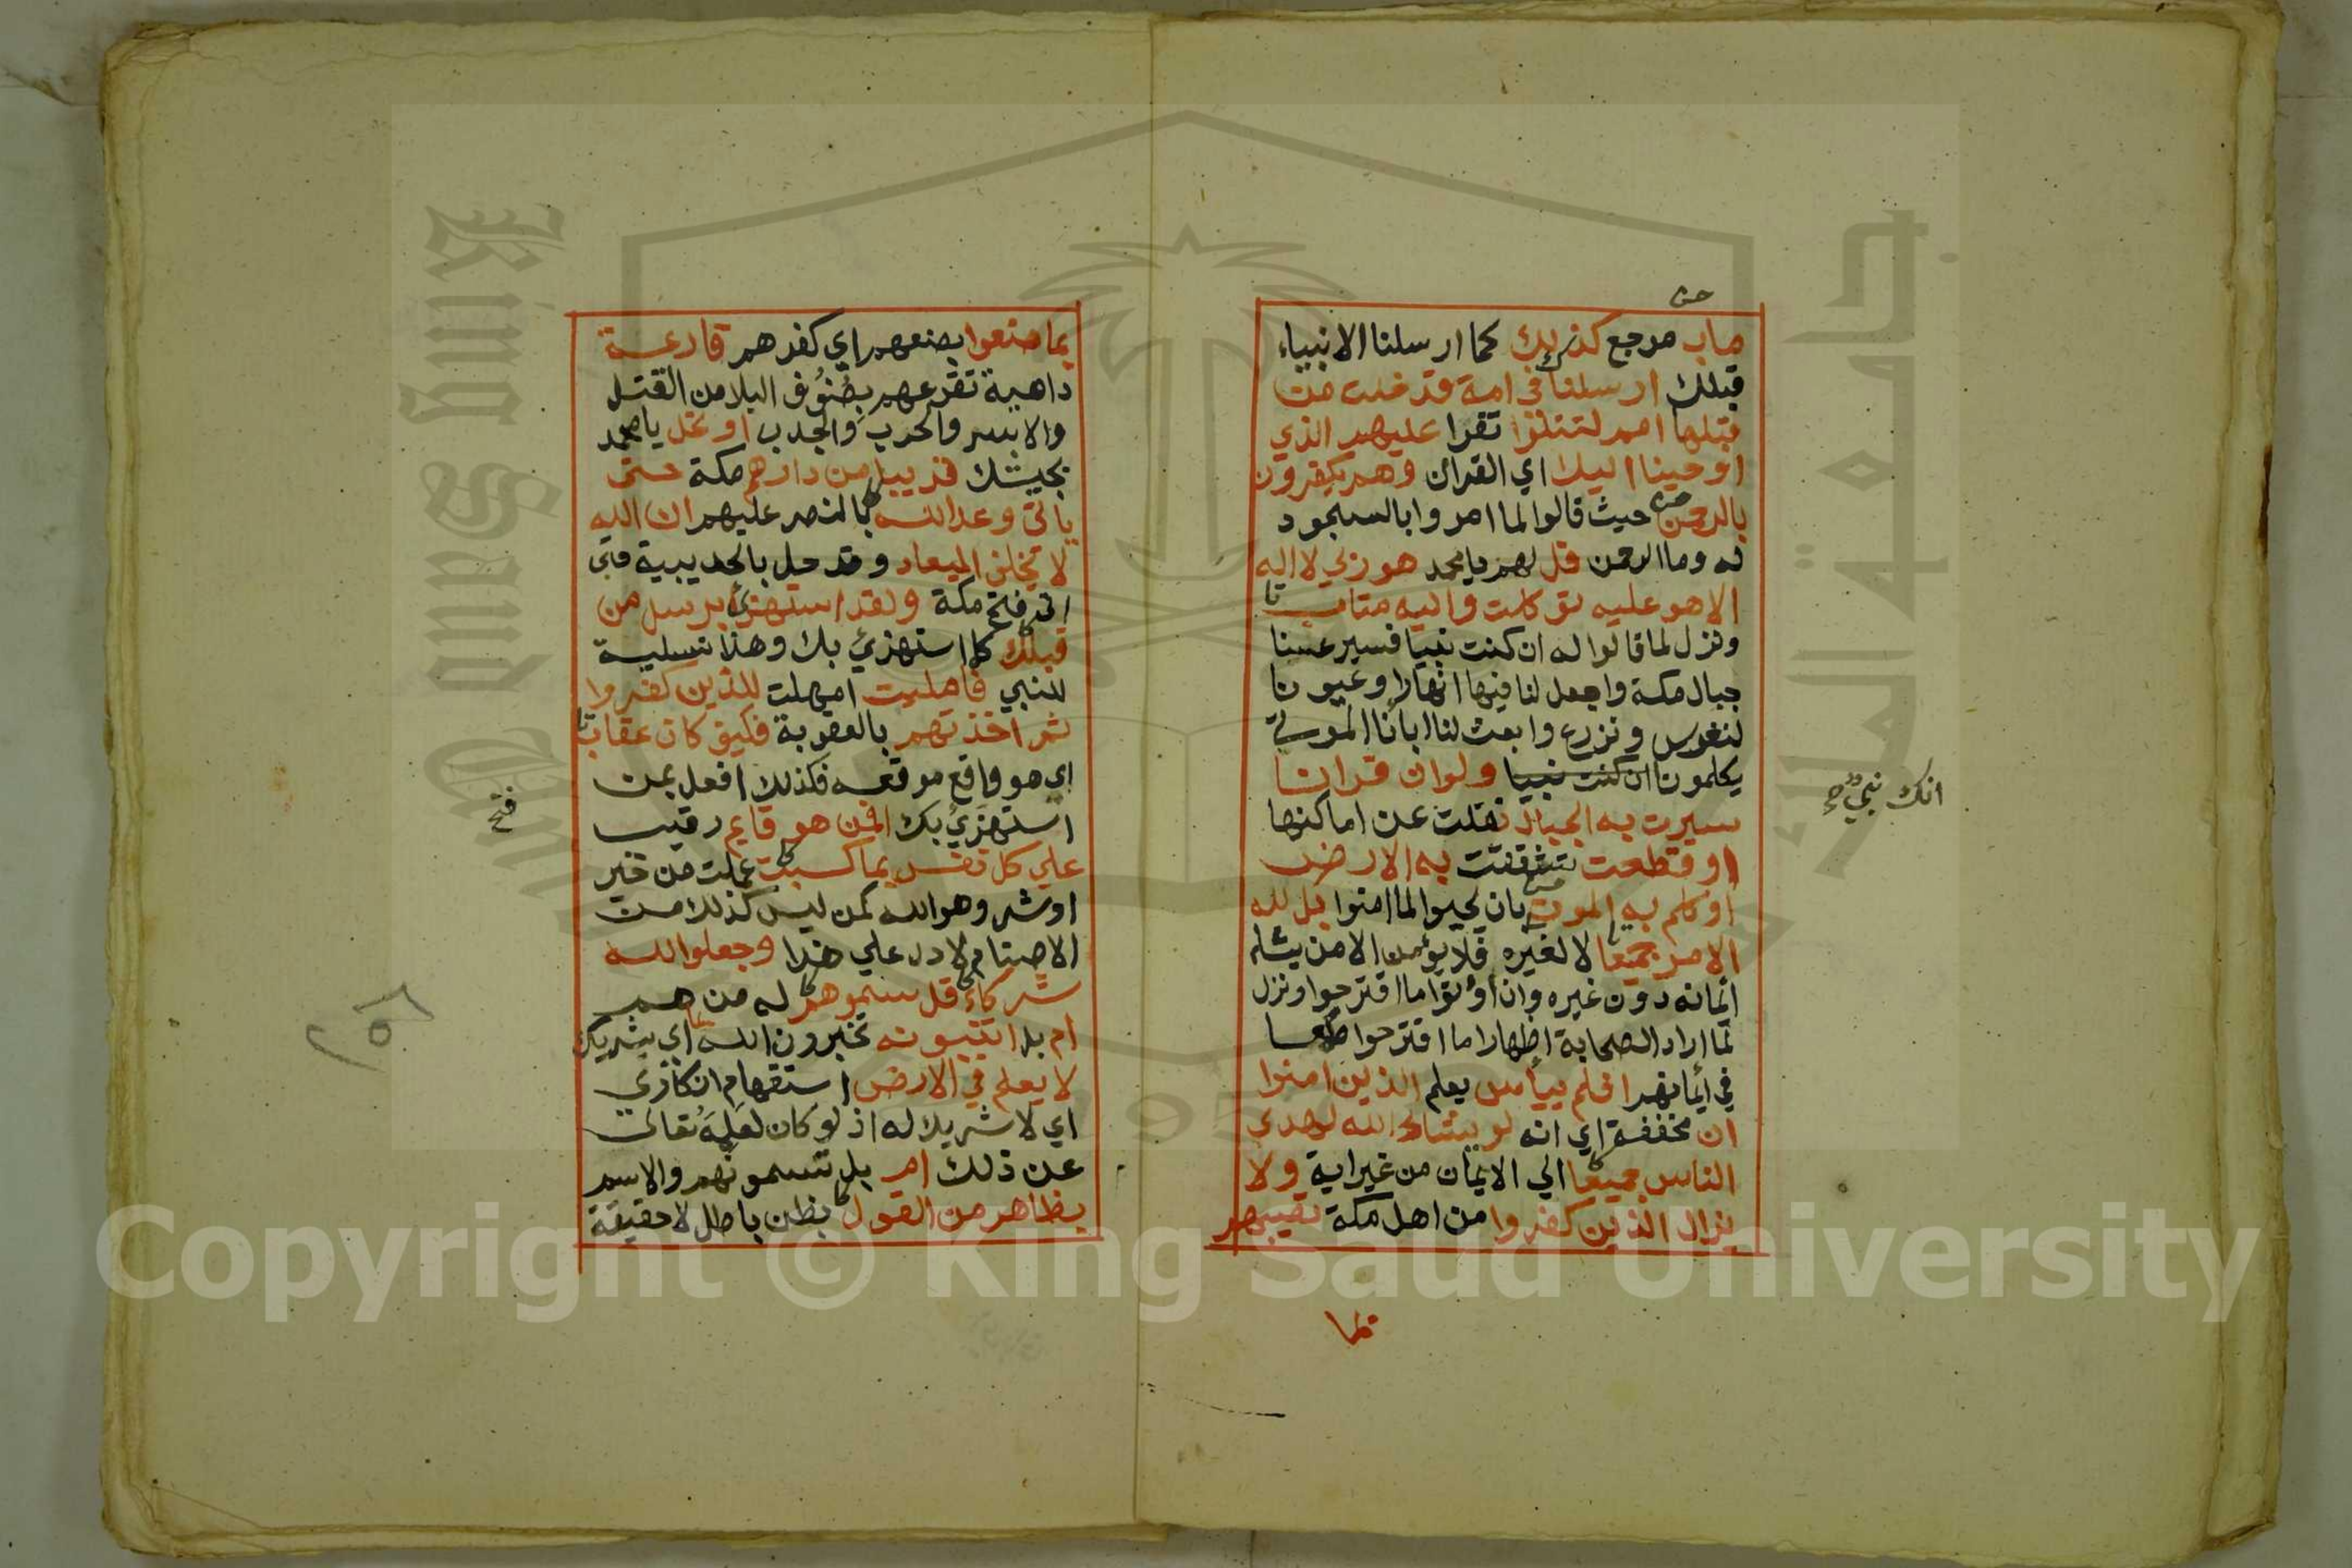 ماب مرجع كذلك كما ارسلنا الانبياء
قبلك ارسلناك في امة قد خلت من
قبلها امم لتتلوا تقرا عليهم الذي
اوحينا اليك اي القران وهم يكفرون
بالرحمن حيث قالوا لما امروا بالسجود
له وما الرحمن قل لهم يا محمد هو ربي لا اله
الا هو عليه توكلت واليه متاب
ونزل لما قالوا له ان كنت نبيا فسير عنا
جبال مكة واجعل لنا فيها انهارا وعيونا
لنغرس ونزرع وابعث لنا ابانا الموتى
يكلمونا ان كنت نبيا ولو ان قرانا
انك نبي صح
سيرت به الجبال نقلت عن اماكنها
او قطعت تشققت به الارض
او كلم به الموتى بان يحيوا لما امنوا بل لله
الامر جميعا لا لغيره فلا يؤمن الا من يشاء
ايمانه دون غيره وان اوتوا ما اقترحوا ونزل
لما اراد الصحابة اظهارا ما اقترحوا طمعا
في ايمانهم افلم ييأس يعلم الذين امنوا
ان مخففة اي انه لو يشاء الله لهدى
الناس جميعا الي الايمان من غير اية ولا
يزال الذين كفروا من اهل مكة تصيبهم
بما صنعوا بصنعهم اي كفرهم قارعة
داهية تقرعهم بصُنُوف البلا من القتل
والاسر والحرب والجدب او تحل يا محمد
بجيشك قريبا من دارهم مكة حتى
ياتي وعد الله بالنصر عليهم ان الله
لا يخلف الميعاد وقد حل بالحديبية حتى
اتى فتح مكة ولقد استهزئ برسل من
قبلك كما استهزئ بك وهذا تسلية
للنبي فامليت امهلت للذين كفروا
ثم اخذتهم بالعقوبة فكيف كان عقاب
اي هو واقع موقعه فكذلك افعل بمن
استهزئ بك افمن هو قايم رقيب
فتح
علي كل نفس بما كسبت عملت من خير
او شر وهو الله كمن ليس كذلك من
الاصنام لا دل علي هذا وجعلوا لله
شركاء قل سموهم له من هم
ام بل اتنبونه تخبرون الله اي بشريك
لا يعلم في الارض استفهام انكاري
اي لا شريك له اذ لو كان لعلمه تعالى
عن ذلك ام بل تسمونهم والاسم
بظاهر من القول بظن باطل لا حقيقة
Copyright © King Saud University
King Saud University
جامعة الملك